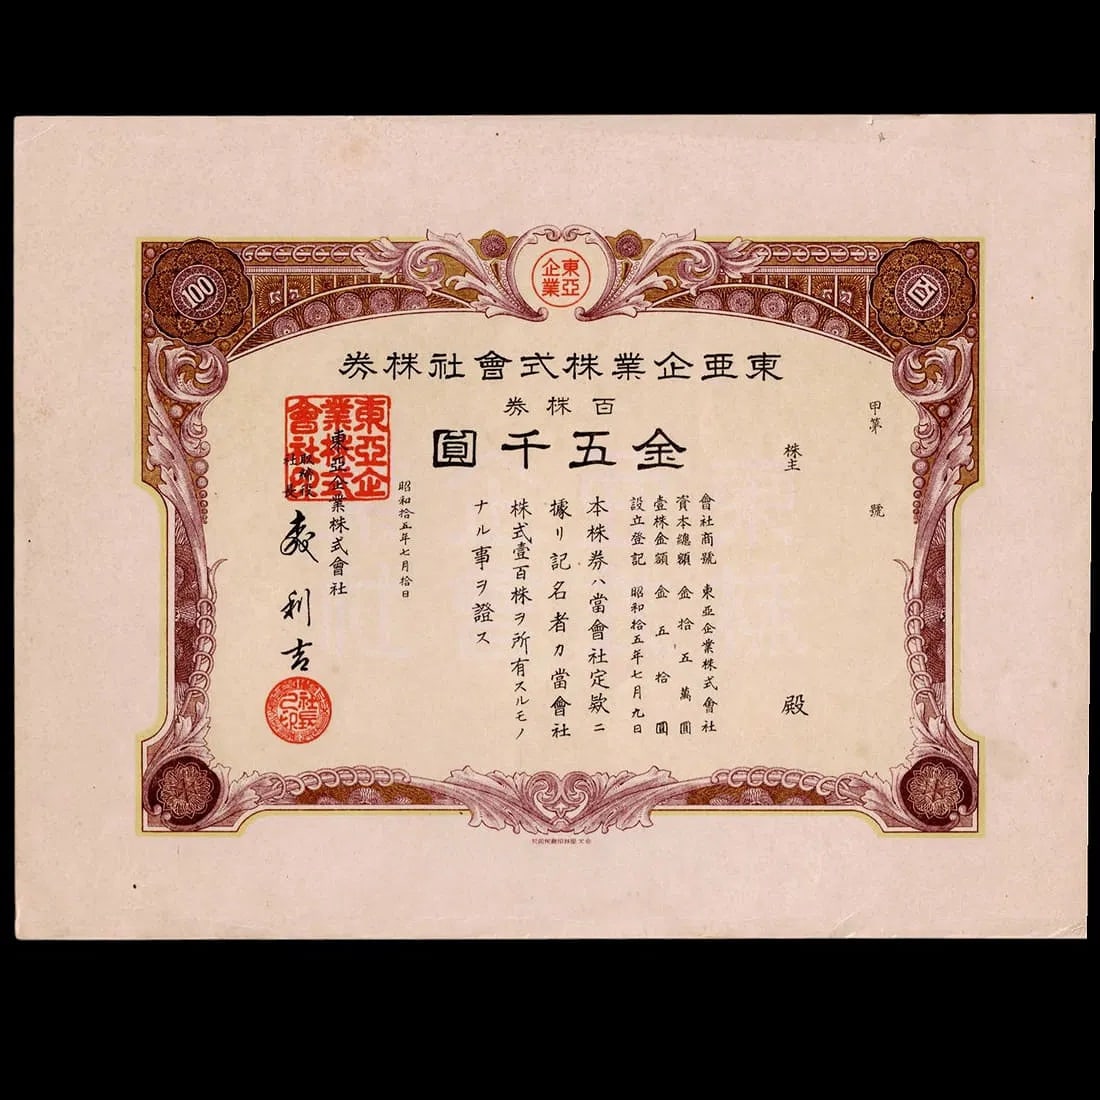 100
東亞企業
百
東亞企業株式會社株券
百株券
金五千圓
甲第 號
株主 殿
會社商號 東亞企業株式會社
資本總額 金拾五萬圓
壹株金額 金五拾圓
設立登記 昭和拾五年七月九日
本株券ハ當會社定款ニ
據リ記名者カ當會社
株式壹百株ヲ所有スルモノ
ナル事ヲ證ス
昭和拾五年七月拾日
東亞企業株式會社
取締役
社長
利吉
東亞企業株式會社印
社長之印